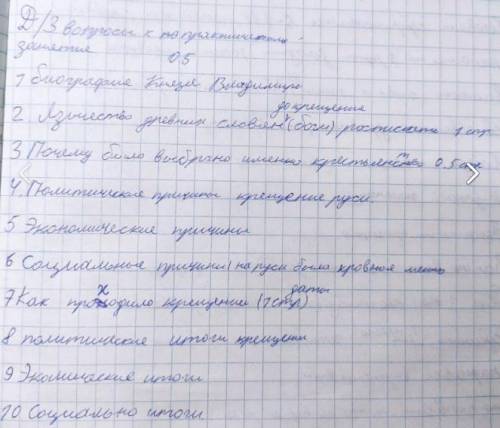 Д/З вопросы к практическому
занятие
0.5
1 биография Князя Владимира
до крещение
2 Язычество древних словян (боги) ростисноть 1 стр
3 Почему было выбрано именно крестьянство 0.5 стр
4. Политические причины крещение руси.
5 Экономические причины
6 Социальные причины (на руси была кровная месть
даты
7 Как проходило крещение (1 стр)
8 политические итоги крещения
9 Экомические итоги
10 Социально итоги